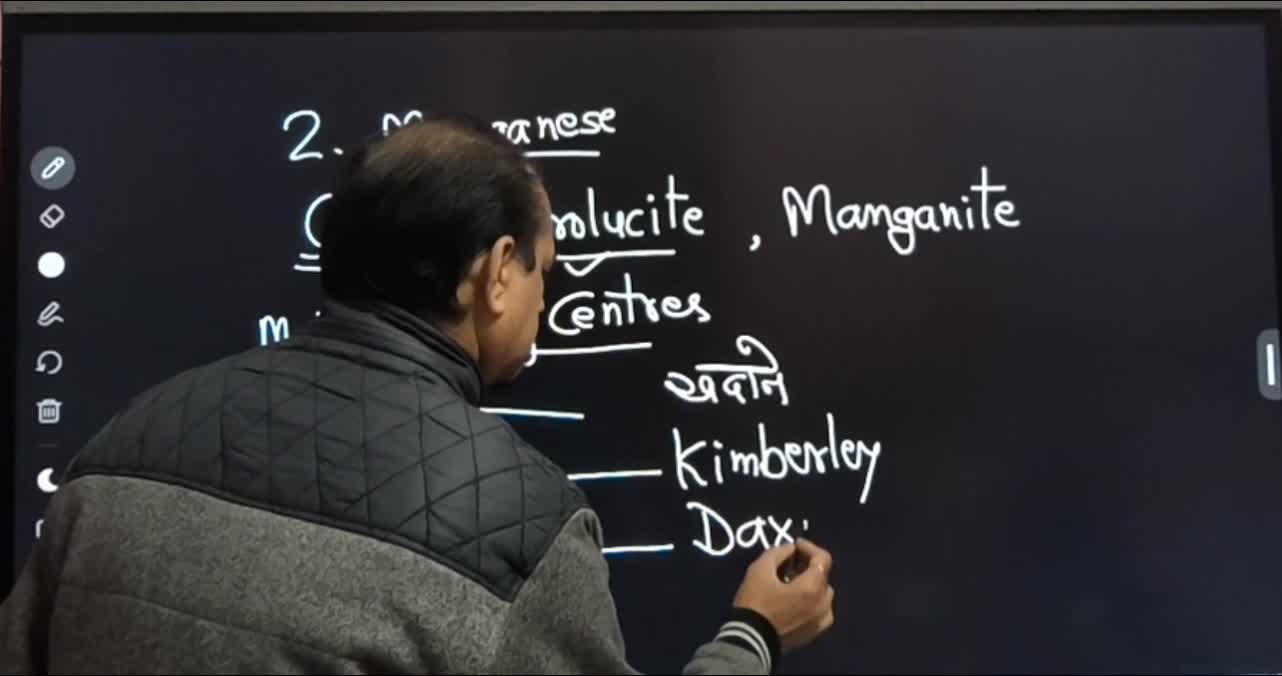 2.
rolucite, Manganite
Centres
खदाने
Kimberley
Dax